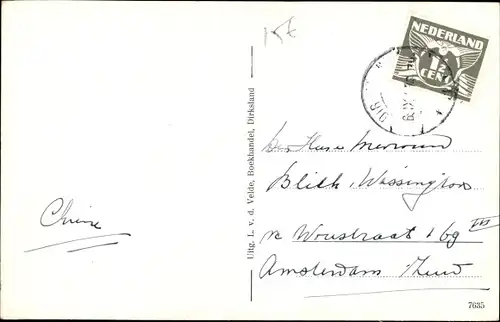 15f
NEDERLAND
1½
CENT
Uitg. L. v. d. Velde, Boekhandel, Dirksland
den Heer Mevrouw
Blith, Wassington
Woustraat 169 III
Amsterdam Zuid
7635